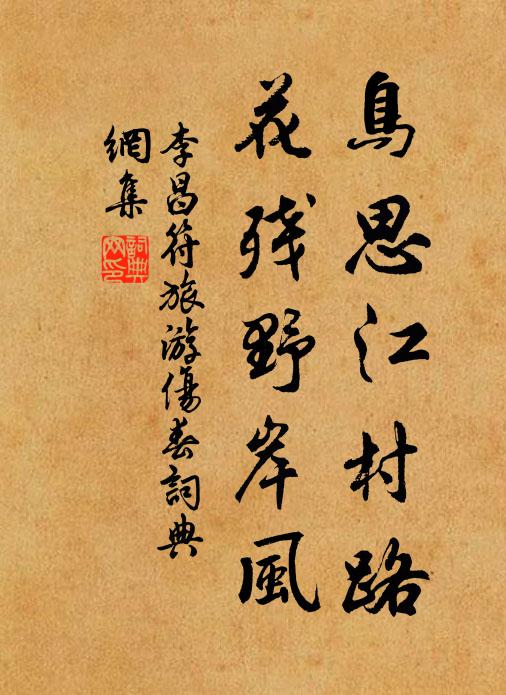 鳥思江村路
花残野岸風
李昌符旅游傷春詞典
網集
詞典
网印